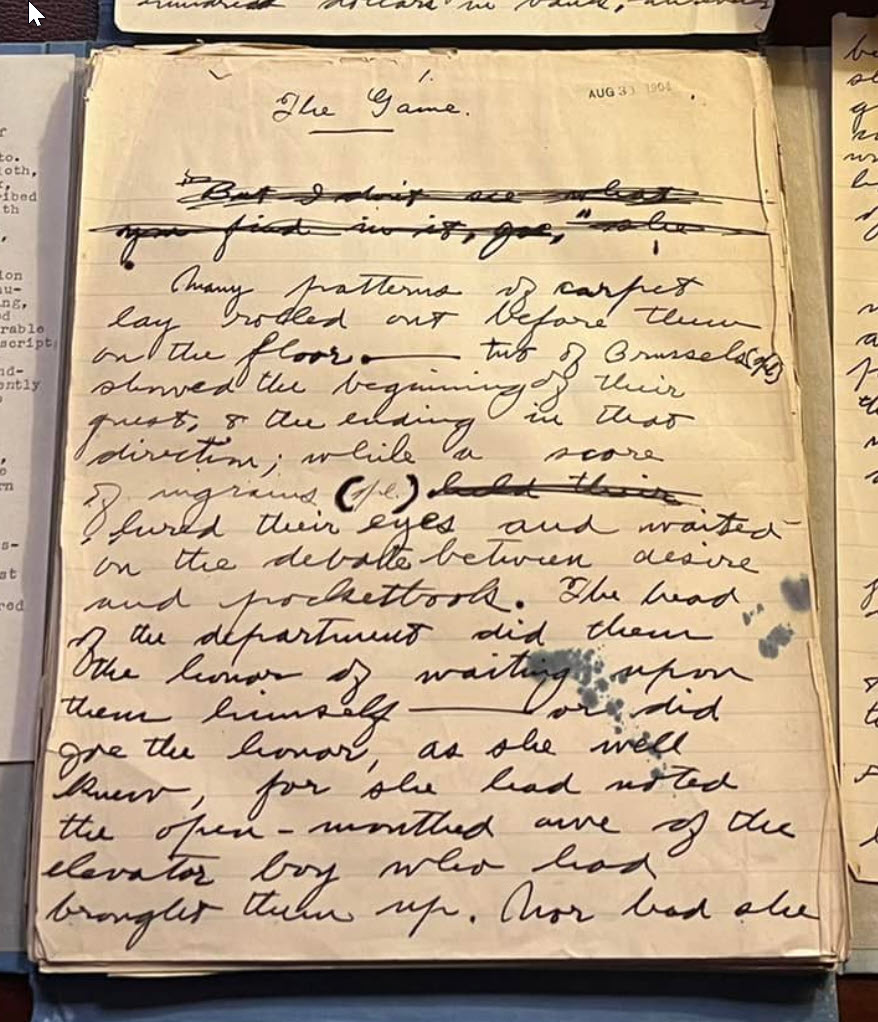 hundred dollars in bank,
1.
The Game.
AUG 30 1904
"But I don't see what
you find in it, Joe," she
Many patterns of carpet
lay rolled out before them
on the floor. — two of Brussels (spl)
showed the beginning of their
quest, & the ending in that
direction; while a score
of ingrains (spl.) held their
lured their eyes and waited
on the debate between desire
and pocketbook. The head
of the department did them
the honor of waiting upon
them himself — or did
Joe the honor, as she well
knew, for she had noted
the open-mouthed awe of the
elevator boy who had
brought them up. Nor had she
to.
ibed
th
ion
ng,
rable
script
nd-
ently
s-
st
red